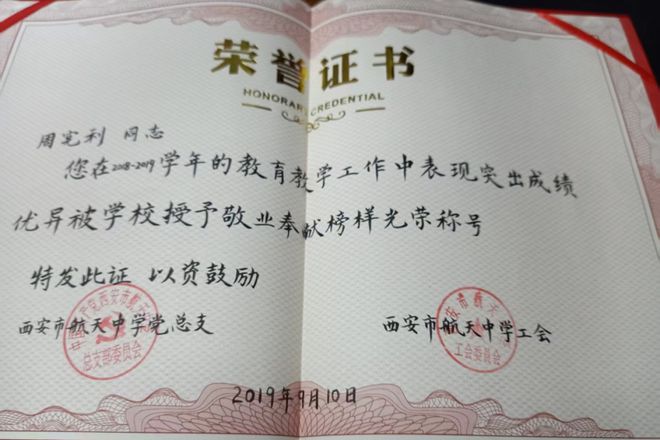 荣誉证书
HONORARY CREDENTIAL
周宪利 同志
您在2018-2019学年的教育教学工作中表现突出成绩
优异被学校授予敬业奉献榜样光荣称号
特发此证 以资鼓励
西安市航天中学党总支
西安市航天中学工会
总支部委员会
工会委员会
2019年9月10日